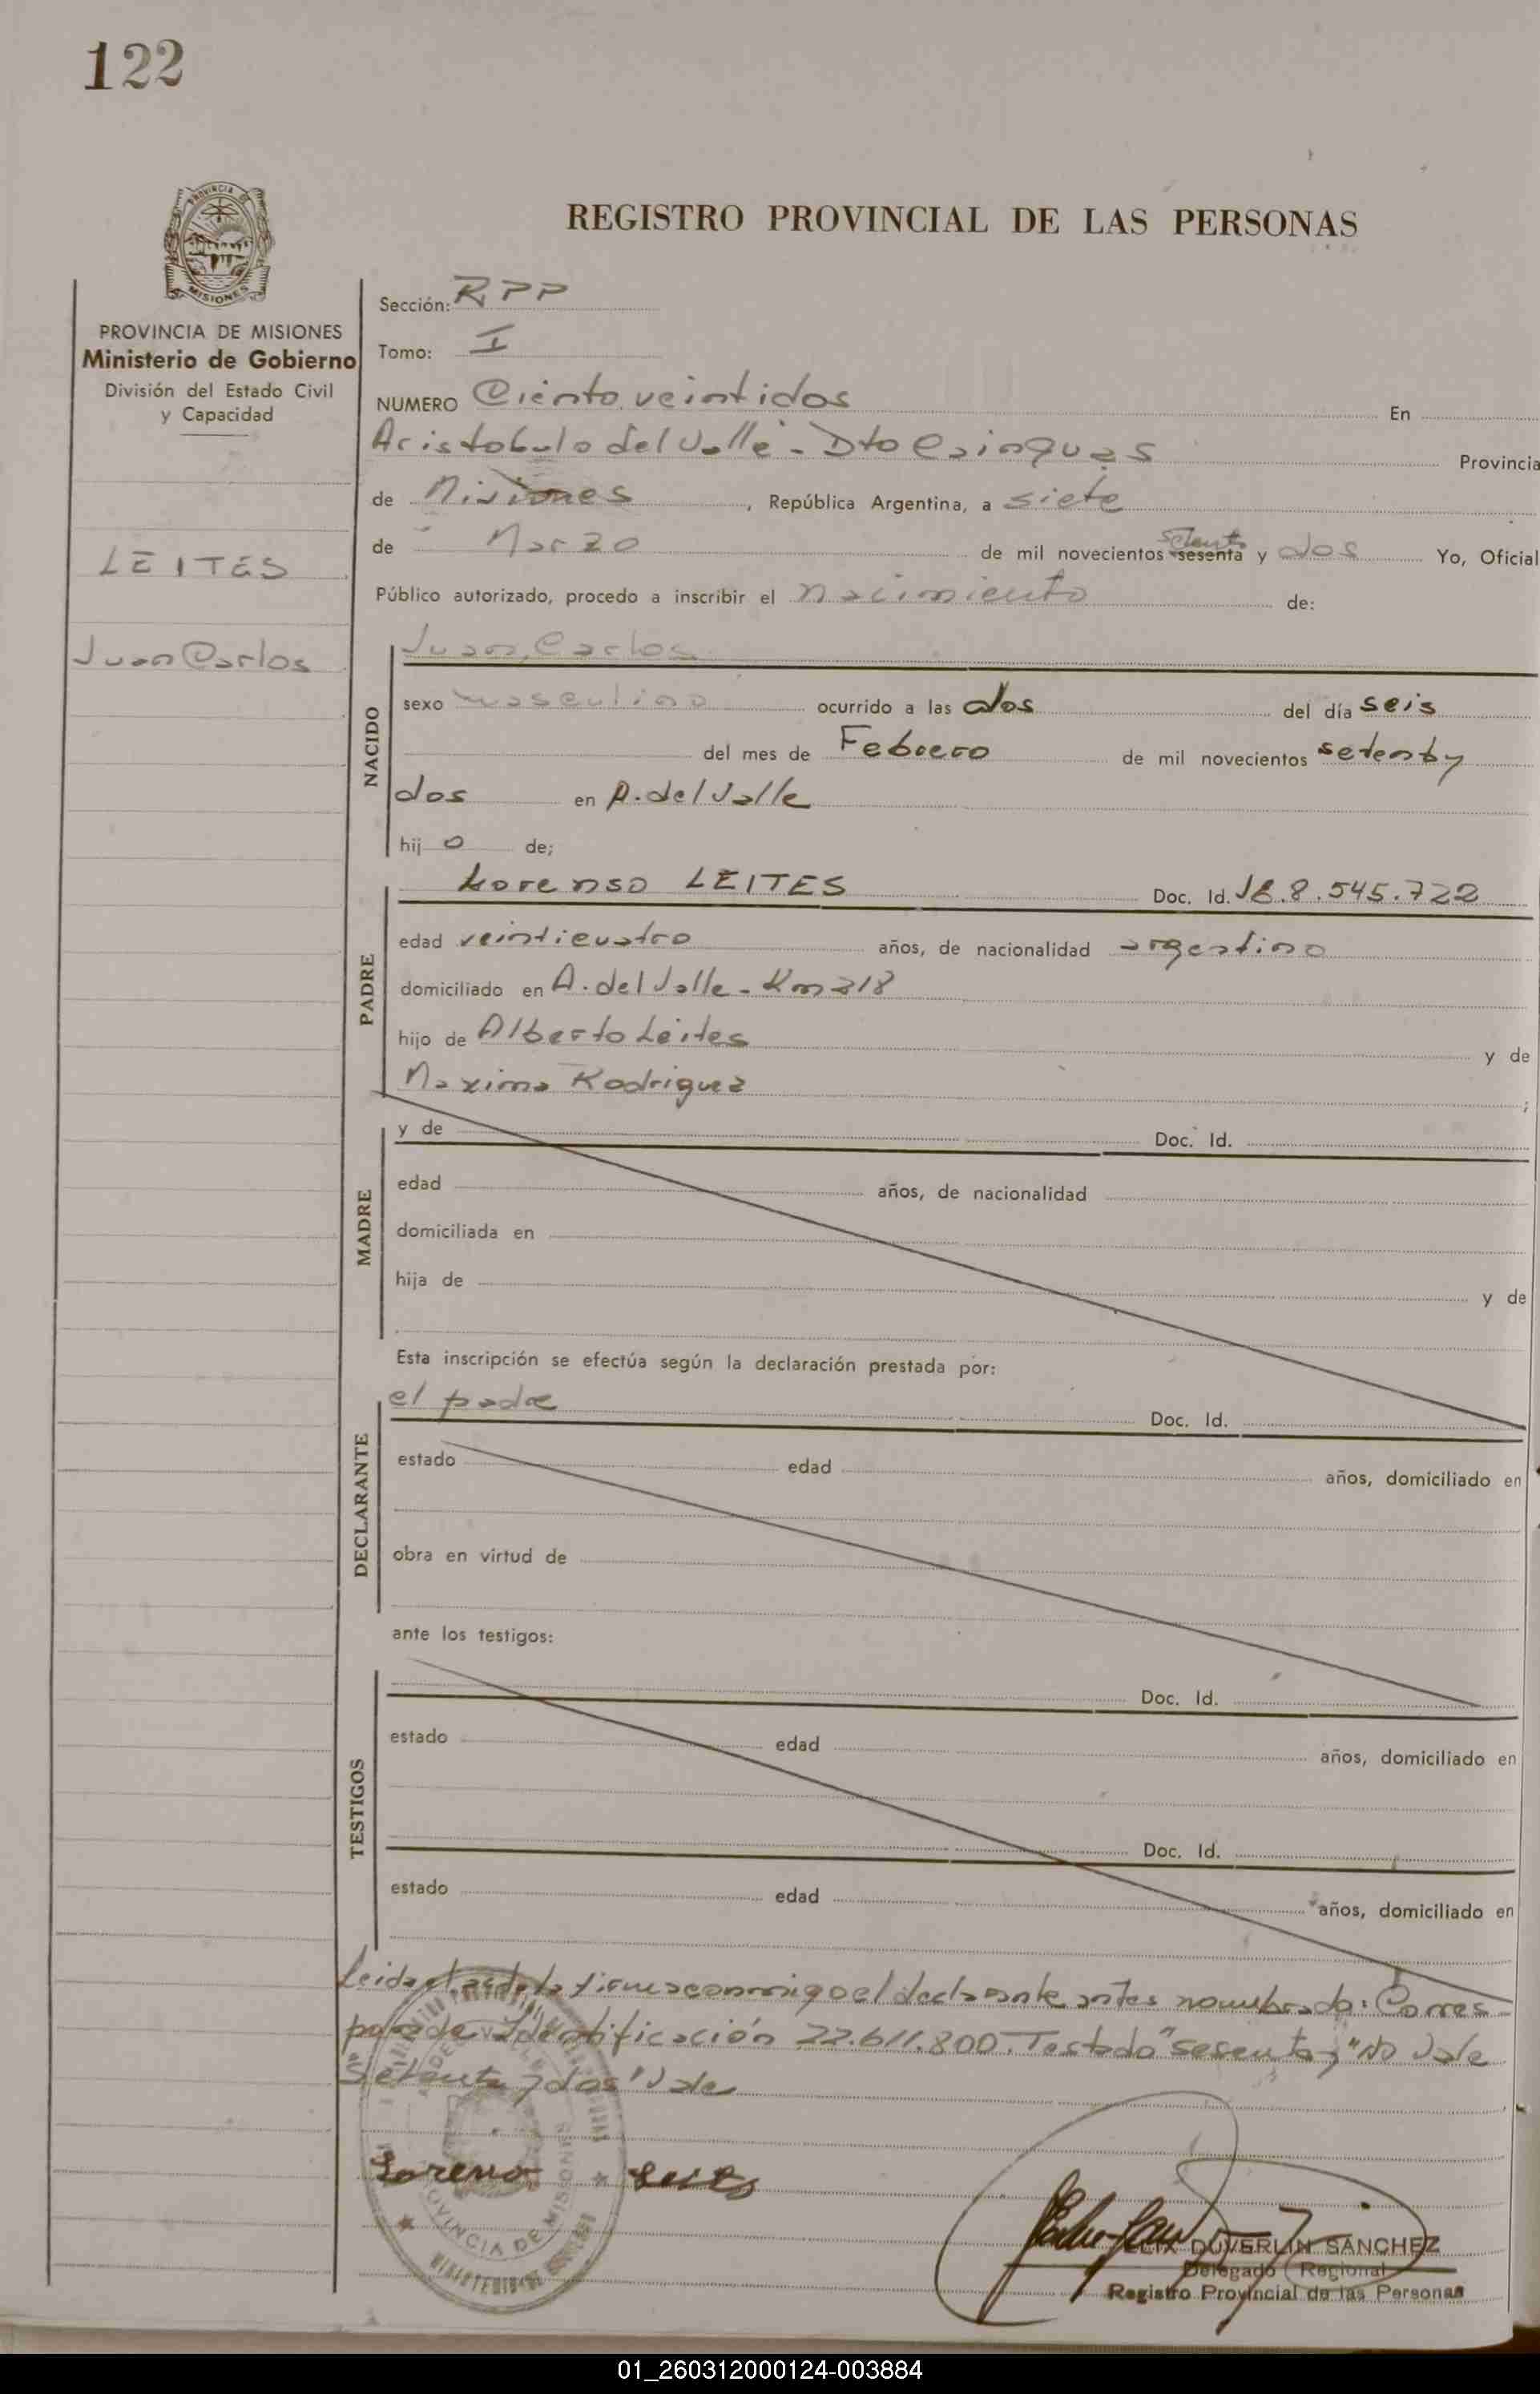 122
PROVINCIA
MISIONES
REGISTRO PROVINCIAL DE LAS PERSONAS
PROVINCIA DE MISIONES
Ministerio de Gobierno
División del Estado Civil
y Capacidad
LEITES
Juan Carlos
Sección: RPP
Tomo: I
NUMERO Ciento veintidos En
Aristobulo del Valle - Dto Cainguas Provincia
de Misiones, República Argentina, a siete
setenta
de Marzo de mil novecientos sesenta y dos Yo, Oficial
Público autorizado, procedo a inscribir el nacimiento de:
NACIDO
Juan Carlos
sexo masculino ocurrido a las dos del día seis
del mes de Febrero de mil novecientos setenta y
dos en A. del Valle
hijo de;
PADRE
Lorenso LEITES Doc. Id. 8.545.722
edad veinticuatro años, de nacionalidad argentino
domiciliado en A. del Valle - Km 218
hijo de Alberto Leites y de
Maxima Rodriguez ;
MADRE
y de Doc. Id.
edad años, de nacionalidad
domiciliada en
hija de y de
Esta inscripción se efectúa según la declaración prestada por:
DECLARANTE
el padre Doc. Id.
estado edad años, domiciliado en
obra en virtud de
ante los testigos:
TESTIGOS
Doc. Id.
estado edad años, domiciliado en
Doc. Id.
estado edad años, domiciliado en
Leida el acta la firma conmigo el declarante antes nombrado: Corres
ponde Identificación 22.611.800. Testado "sesenta y" No Vale
"Setenta y dos" Vale
PROVINCIA DE MISIONES
MINISTERIO DE GOBIERNO
FELIX DUVERLIN SANCHEZ
Delegado Regional
Registro Provincial de las Personas
01_260312000124-003884